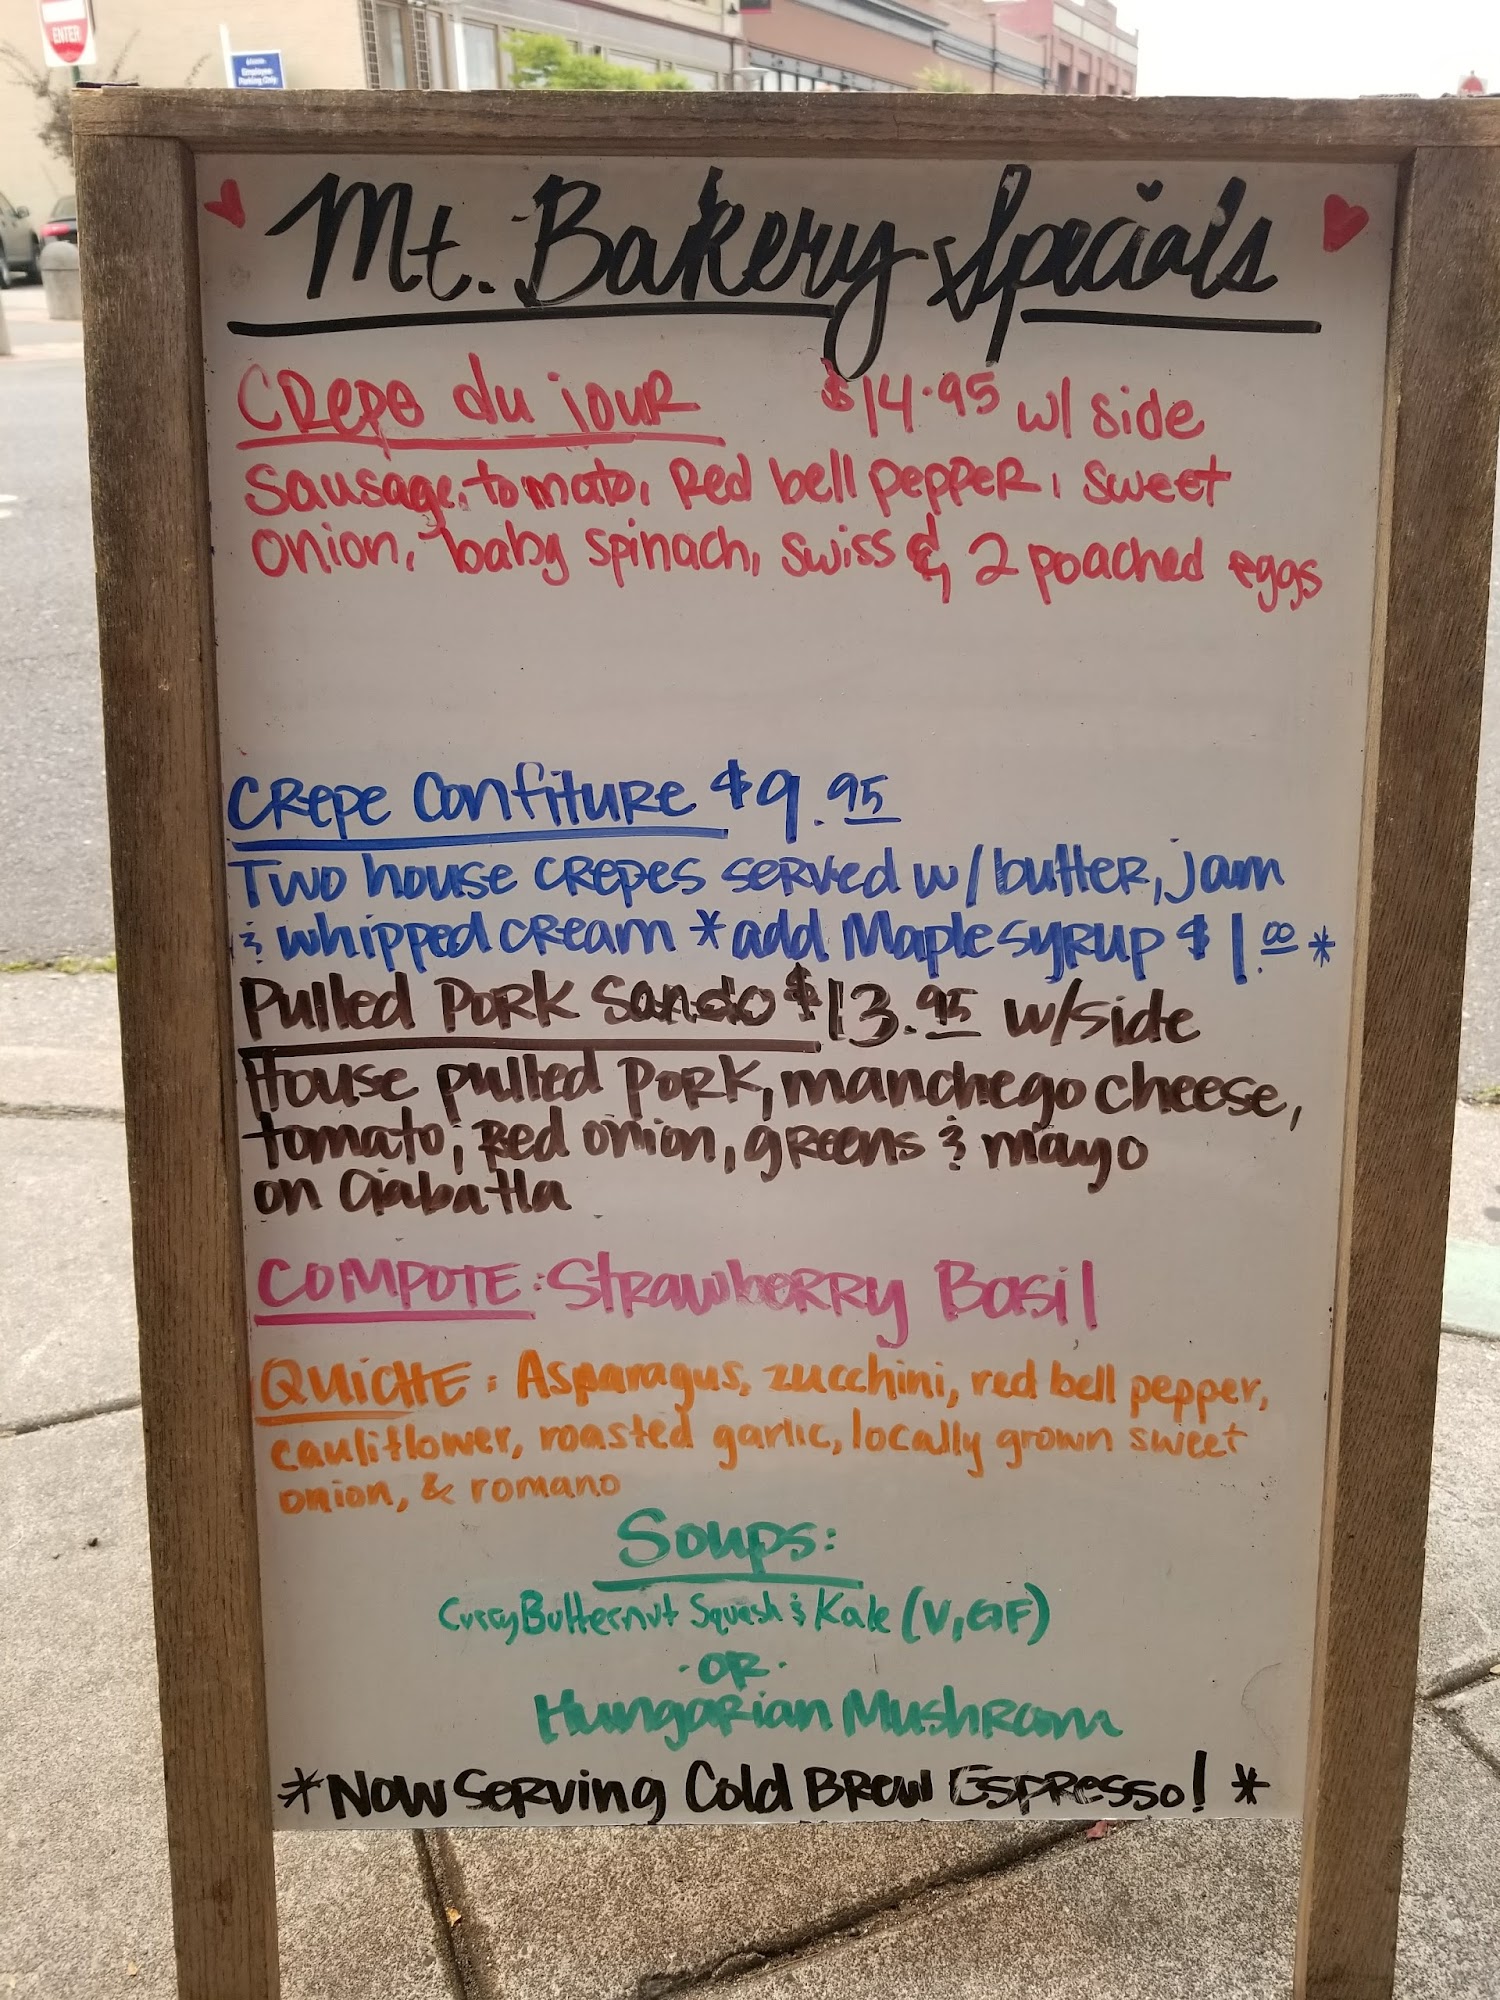 ENTER
Employee
Parking Only
Mt. Bakery Specials
Crepe du jour $14.95 w/ side
Sausage, tomato, Red bell pepper, sweet
onion, baby spinach, swiss & 2 poached eggs
Crepe Confiture $9.95
Two house crepes served w/ butter, jam
& whipped cream *add Maple syrup $1.00*
Pulled Pork Sando $13.95 w/side
House pulled pork, manchego cheese,
tomato, Red onion, greens & mayo
on Ciabatta
COMPOTE: Strawberry Basil
QUICHE: Asparagus, zucchini, red bell pepper,
cauliflower, roasted garlic, locally grown sweet
onion, & romano
Soups:
Curry Butternut Squash & Kale (V, GF)
·OR·
Hungarian Mushroom
*Now Serving Cold Brew Espresso! *